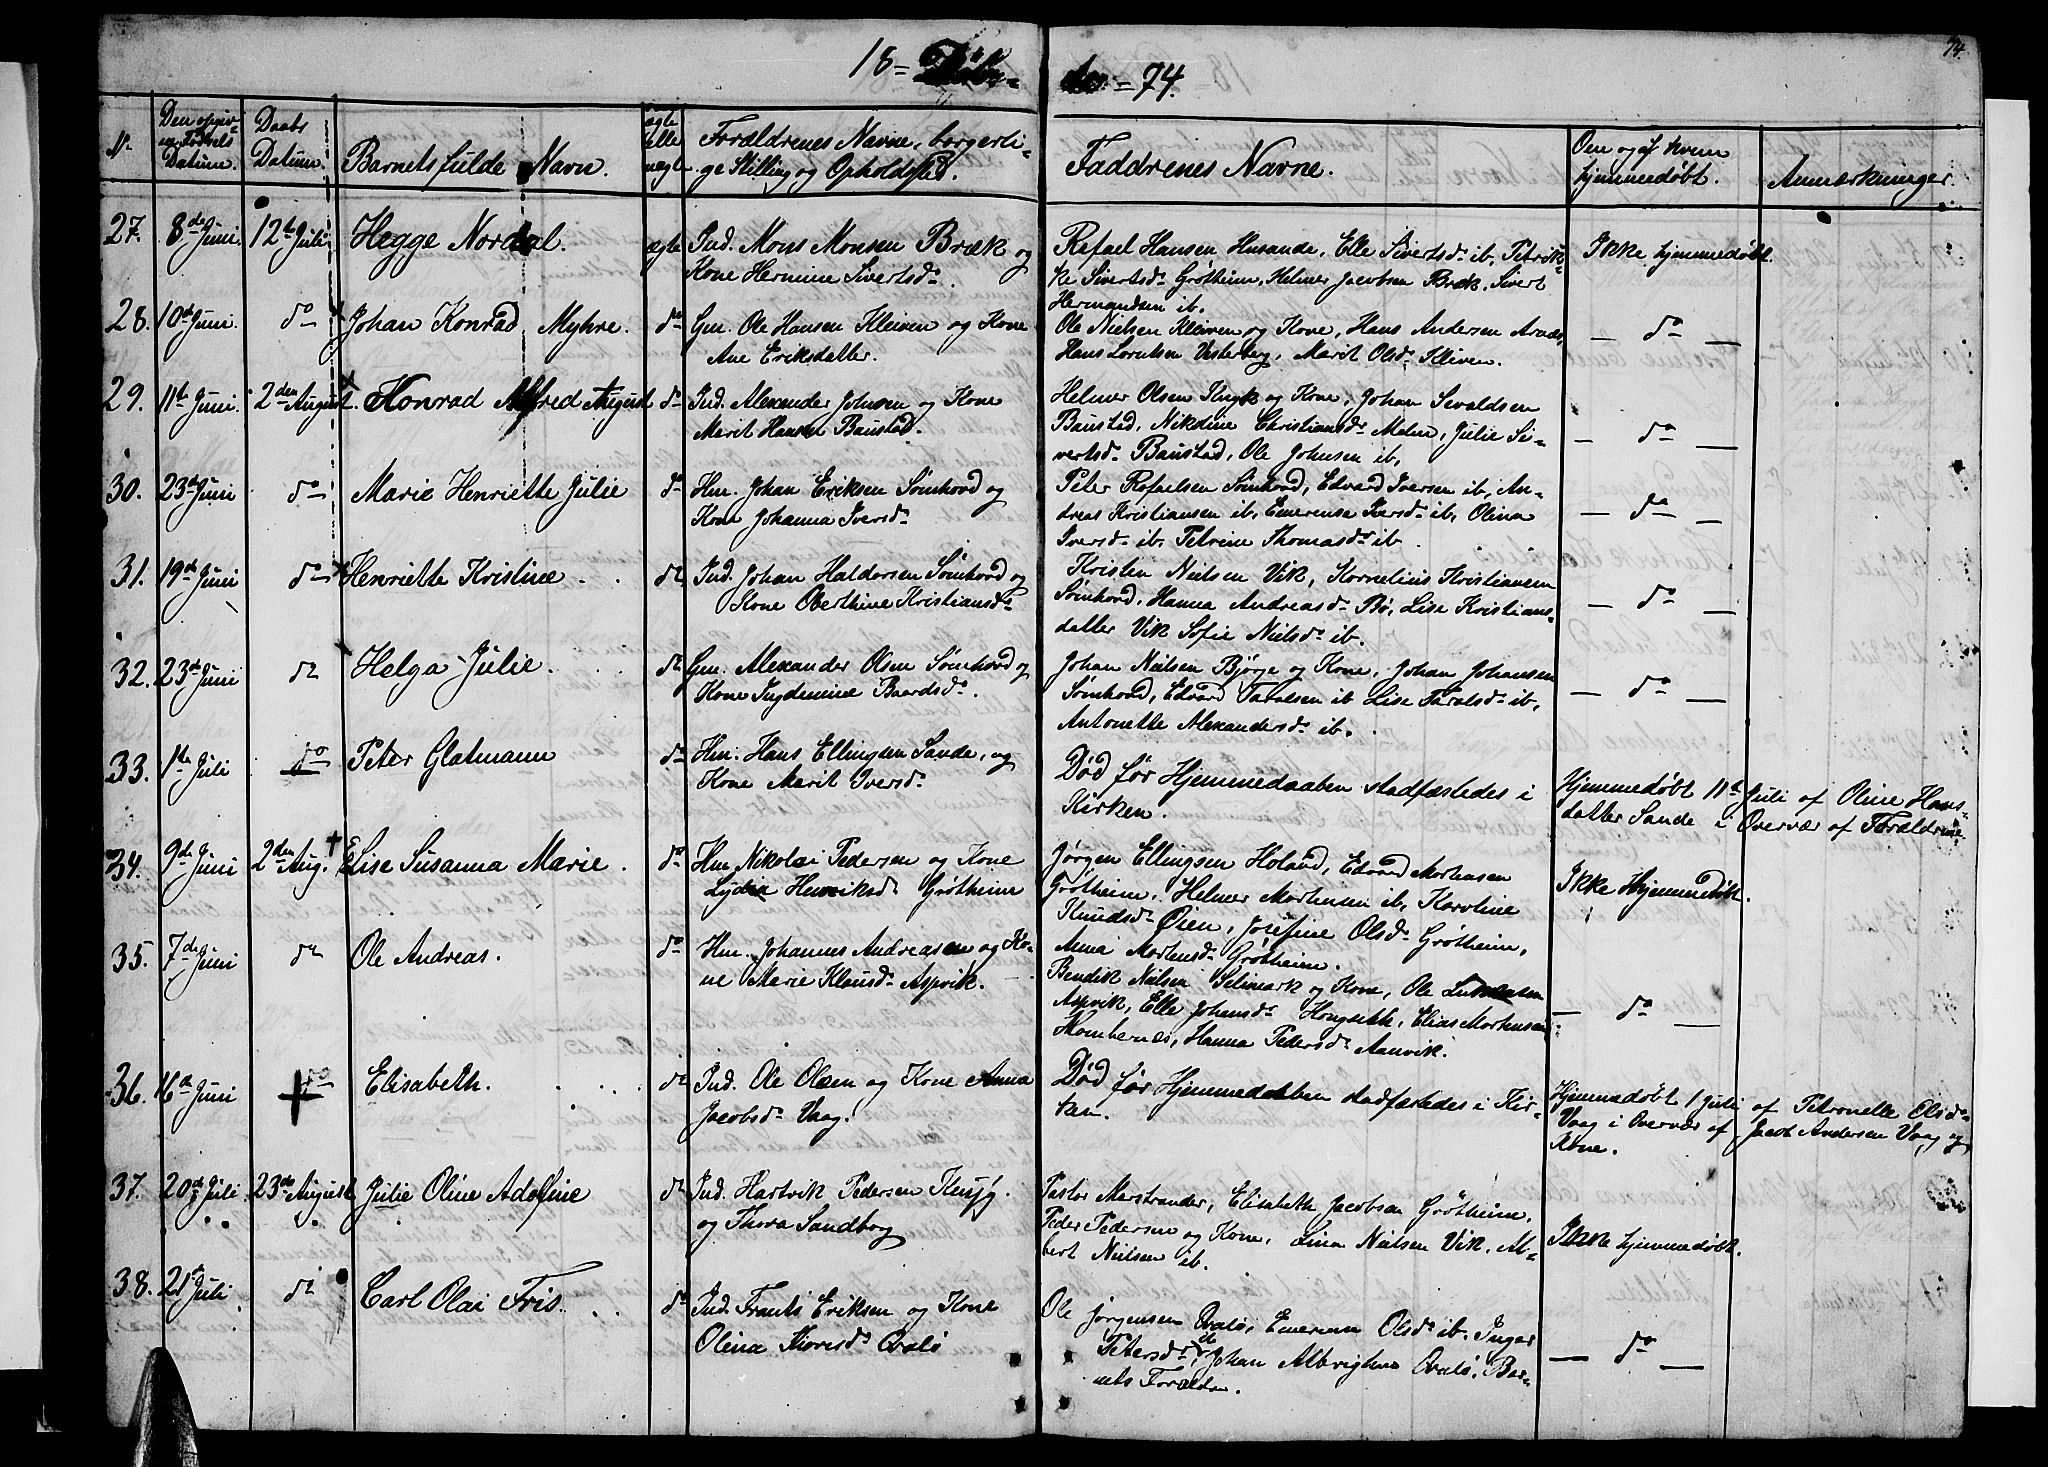 74.
18 = Døbte = 74.
No
Den opgivne Fødsels Datum.
Daabs Datum.
Barnets fulde Navn.
ægte eller uægte
Forældrenes Navne, borgerlige Stilling og Opholdsted.
Faddrenes Navne.
Om og af hvem hjemmedøbt.
Anmærkninger.
27. 8de Juni. 12te Juli Hegge Nordal. ægte
Ind. Mons Monsen Bræk og
Kone Hermine Sivertsd.
Rafael Hansen Husande, Elle Sivertsd. ib, Petrik-
ke Sivertsd. Grötheim, Helmer Jacobsen Bræk, Sivert
Hermandsen ib.
Ikke hjemmedøbt.
28. 10de Juni. do Johan Konrad Myhre. do
Gm. Ole Hansen Kleiven og Kone
Ane Eriksdatter.
Ole Nielsen Kleiven og Kone, Hans Andersen Arnæs,
Hans Lorntsen Vesterberg, Marit Olsd. Kleven.
— do —
29. 11te Juni. 2den August. Konrad Alfred August do
Ind. Alexander Johnsen og Kone
Marit Hansen Baustad.
Helmer Olsen Knyk og Kone, Johan Sevaldsen
Baustad, Nikoline Christiansd. Melen, Julie Si-
vertsd. Baustad, Ole Johnsen ib,
— do —
30. 23de Juni do Marie Henriette Julie do
Hm. Johan Eriksen Sömhovd og
Kone Johanna Iversd.
Peter Rafaelsen Sömhovd, Edvard Iversen ib, An-
dreas Kristiansen ib, Emerense Iversd. ib, Olina
Iversd. ib, Petrine Thomasd. ib
— do —
31. 19de Juni do Henriette Kristine . . do
Ind. Johan Haldorsen Sömhovd og
Kone Oberthine Kristiansd.
Kristen Nielsen Vik, Kornelius Kristiansen
Sömhovd, Hanna Andreasd. Bö, Lise Kristians-
datter Vik Sofie Nielsd. ib.
— do —
32. 23de Juni do Helga Julie. . do
Gm. Alexander Olsen Sömhovd og
Kone Ingdemine Baardsd.
Johan Nielsen Björge og Kone, Johan Johansen
Sömhovd, Edvard Taralsen ib Lise Taralsd. ib,
Antonette Alexandersd. ib.
— do —
33. 1te Juli do Peter Glatmann do
Hm. Hans Ellingsen Sande, og
Kone Marit Iversd.
Död før Hjemmedaaben stadfæstedes i
Kirken.
Hjemmedøbt 11te Juli af Oline Hans-
datter Sande i Overvær af Forældrene
34. 9de Juni 2den Aug. Elise Susanna Marie. do
Hm Nikolai Pedersen og Kone
Lydia Henriksd. Grötheim
Jørgen Ellingsen Holand, Edvard Mortensen
Grötheim, Helmer Mortensen ib, Karoline
Knudsd. Öien, Josefine Olsd. Grötheim,
Anna Mortensd. Grötheim.
Ikke Hjemmedøbt.
35. 7de Juni do Ole Andreas. do
Hm. Johannes Andreasen og Ko-
ne Marie Klausd. Aspvik.
Bendik Nielsen Selimark og Kone, Ole
Aspvik, Elle Johansd. Hongseth, Elias Mortensen
Hombernes, Hanna Pedersd. Aanvik.
— do —
36. 16de Juni do Elisabeth. . . . do
Ind. Ole Olsen og Kone Anna
Jacobsd. Vaag.
Död før Hjemmedaaben stadfæstedes i Kir-
ken.
Hjemmedøbt 1 Juli af Petronelle Olsd.
Vaag i Overvær af Jacob Andersen Vaag og
Kone.
37. 20de Juli. 23de August Julie Oline Adolfine do
Ind. Hartvik Pedersen Knyg.
og Thora Sandborg
Pastor Marstrander, Elisabeth Jacobsen Grötheim,
Peder Pedersen og Kone, Lina Nielsen Vik, Al-
bert Nielsen ib.
Ikke hjemmedøbt.
38. 21te Juli do Carl Olai Fris. . . do
Ind. Frants Eriksen og Kone
Olina Thoresd. Qvalö
Ole Jørgensen Qvalö, Emerense Olsd. ib. Inger
Petersd. ib, Johan Albrigtsen Qvalö, Bar-
nets Forældre.
— do —